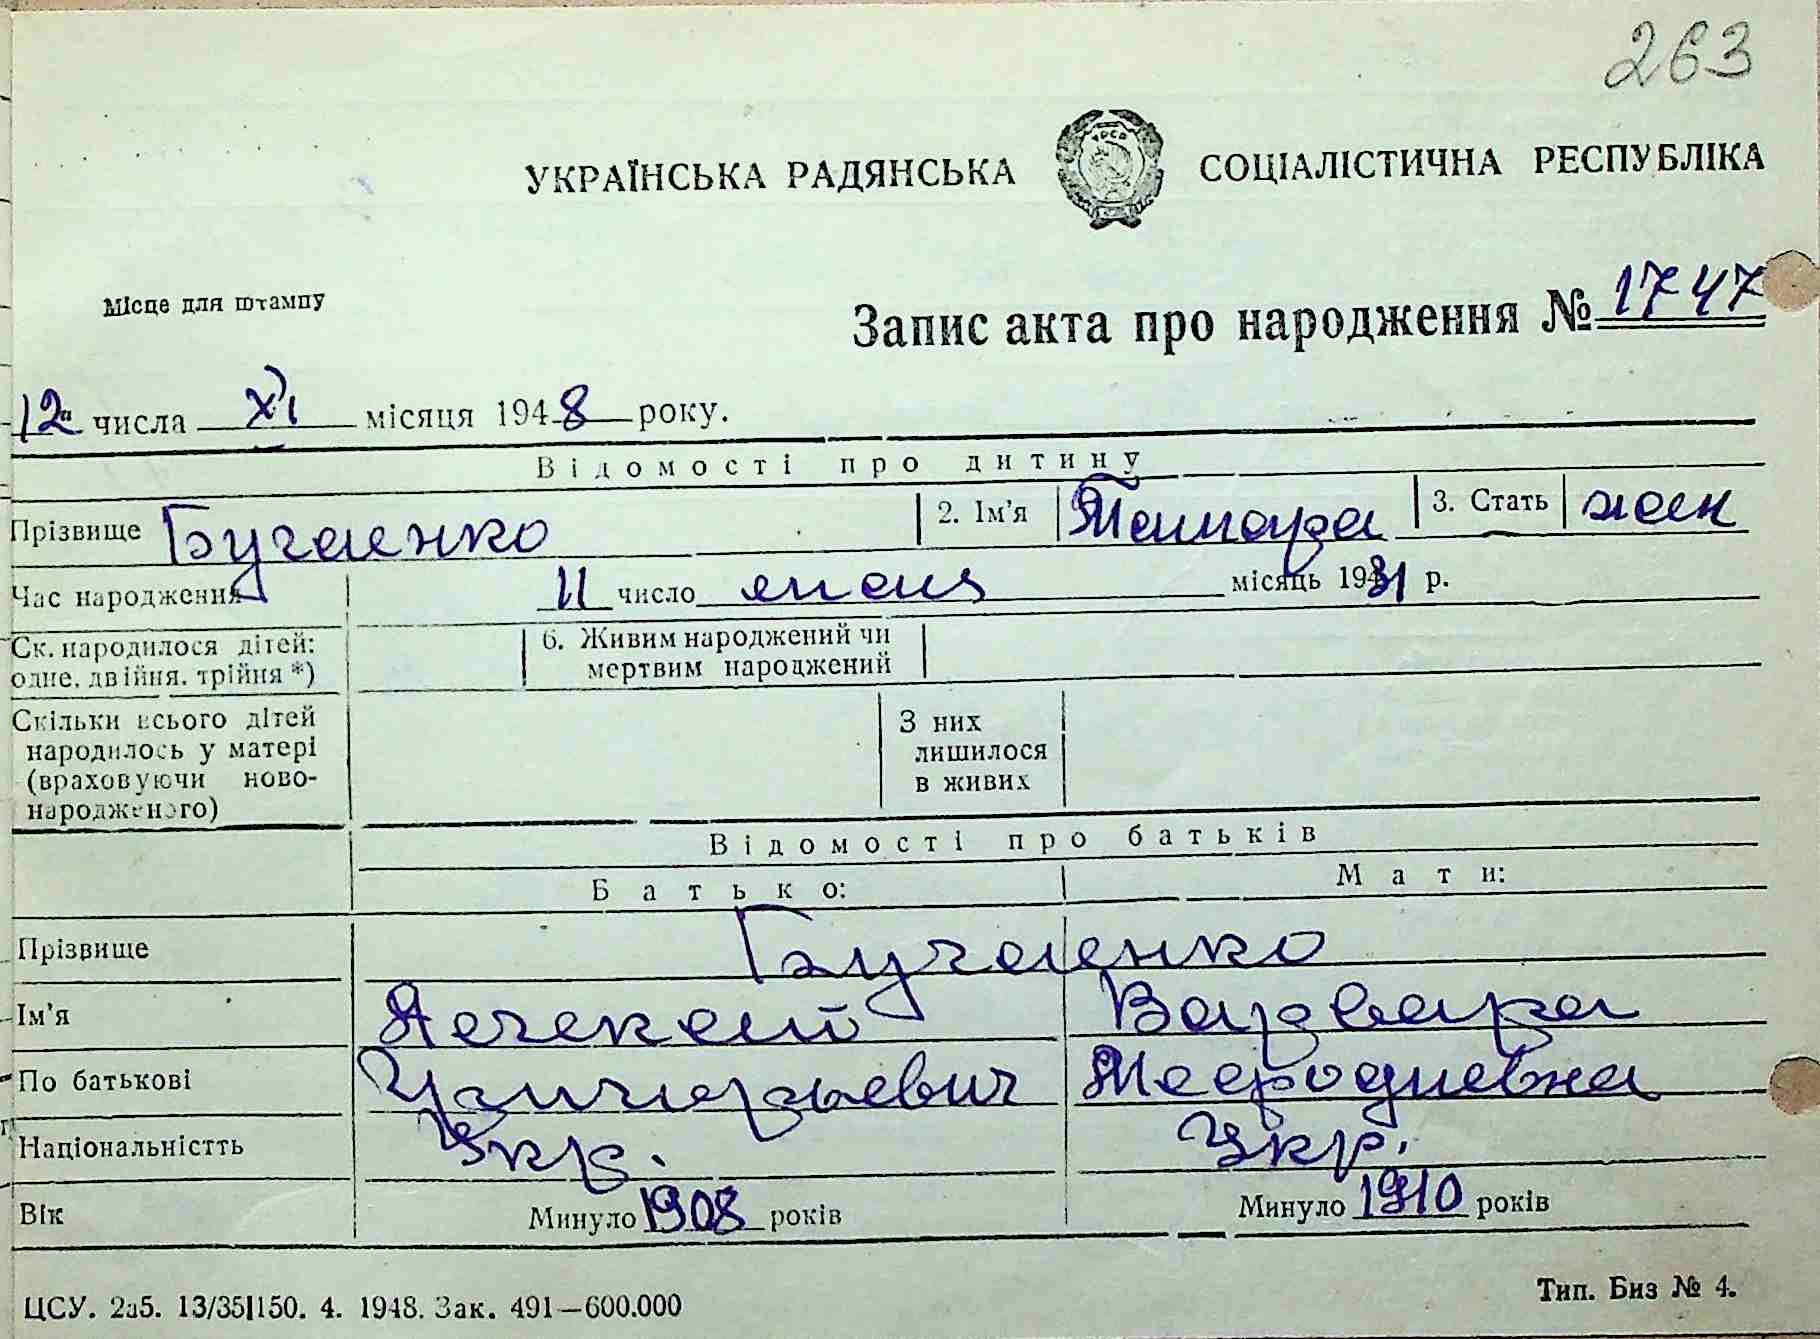 263
УКРАЇНСЬКА РАДЯНСЬКА СОЦІАЛІСТИЧНА РЕСПУБЛІКА
Місце для штампу
Запис акта про народження № 1747
12 числа XI місяця 1948 року.
Відомості про дитину
Прізвище Бугаенко 2. Ім'я Тамара 3. Стать жен
Час народження 11 число мая місяць 1931 р.
Ск. народилося дітей: одне, двійня, трійня *)
6. Живим народжений чи мертвим народжений
Скільки всього дітей народилось у матері (враховуючи ново-народженого)
З них лишилося в живих
Відомості про батьків
Батько: Мати:
Прізвище Бугаенко
Ім'я Алексей Варвара
По батькові Григорьевич
Національністть Укр. Укр.
Вік Минуло 1908 років Минуло 1910 років
ЦСУ. 2а5. 13/35|150. 4. 1948. Зак. 491—600.000
Тип. Биз № 4.